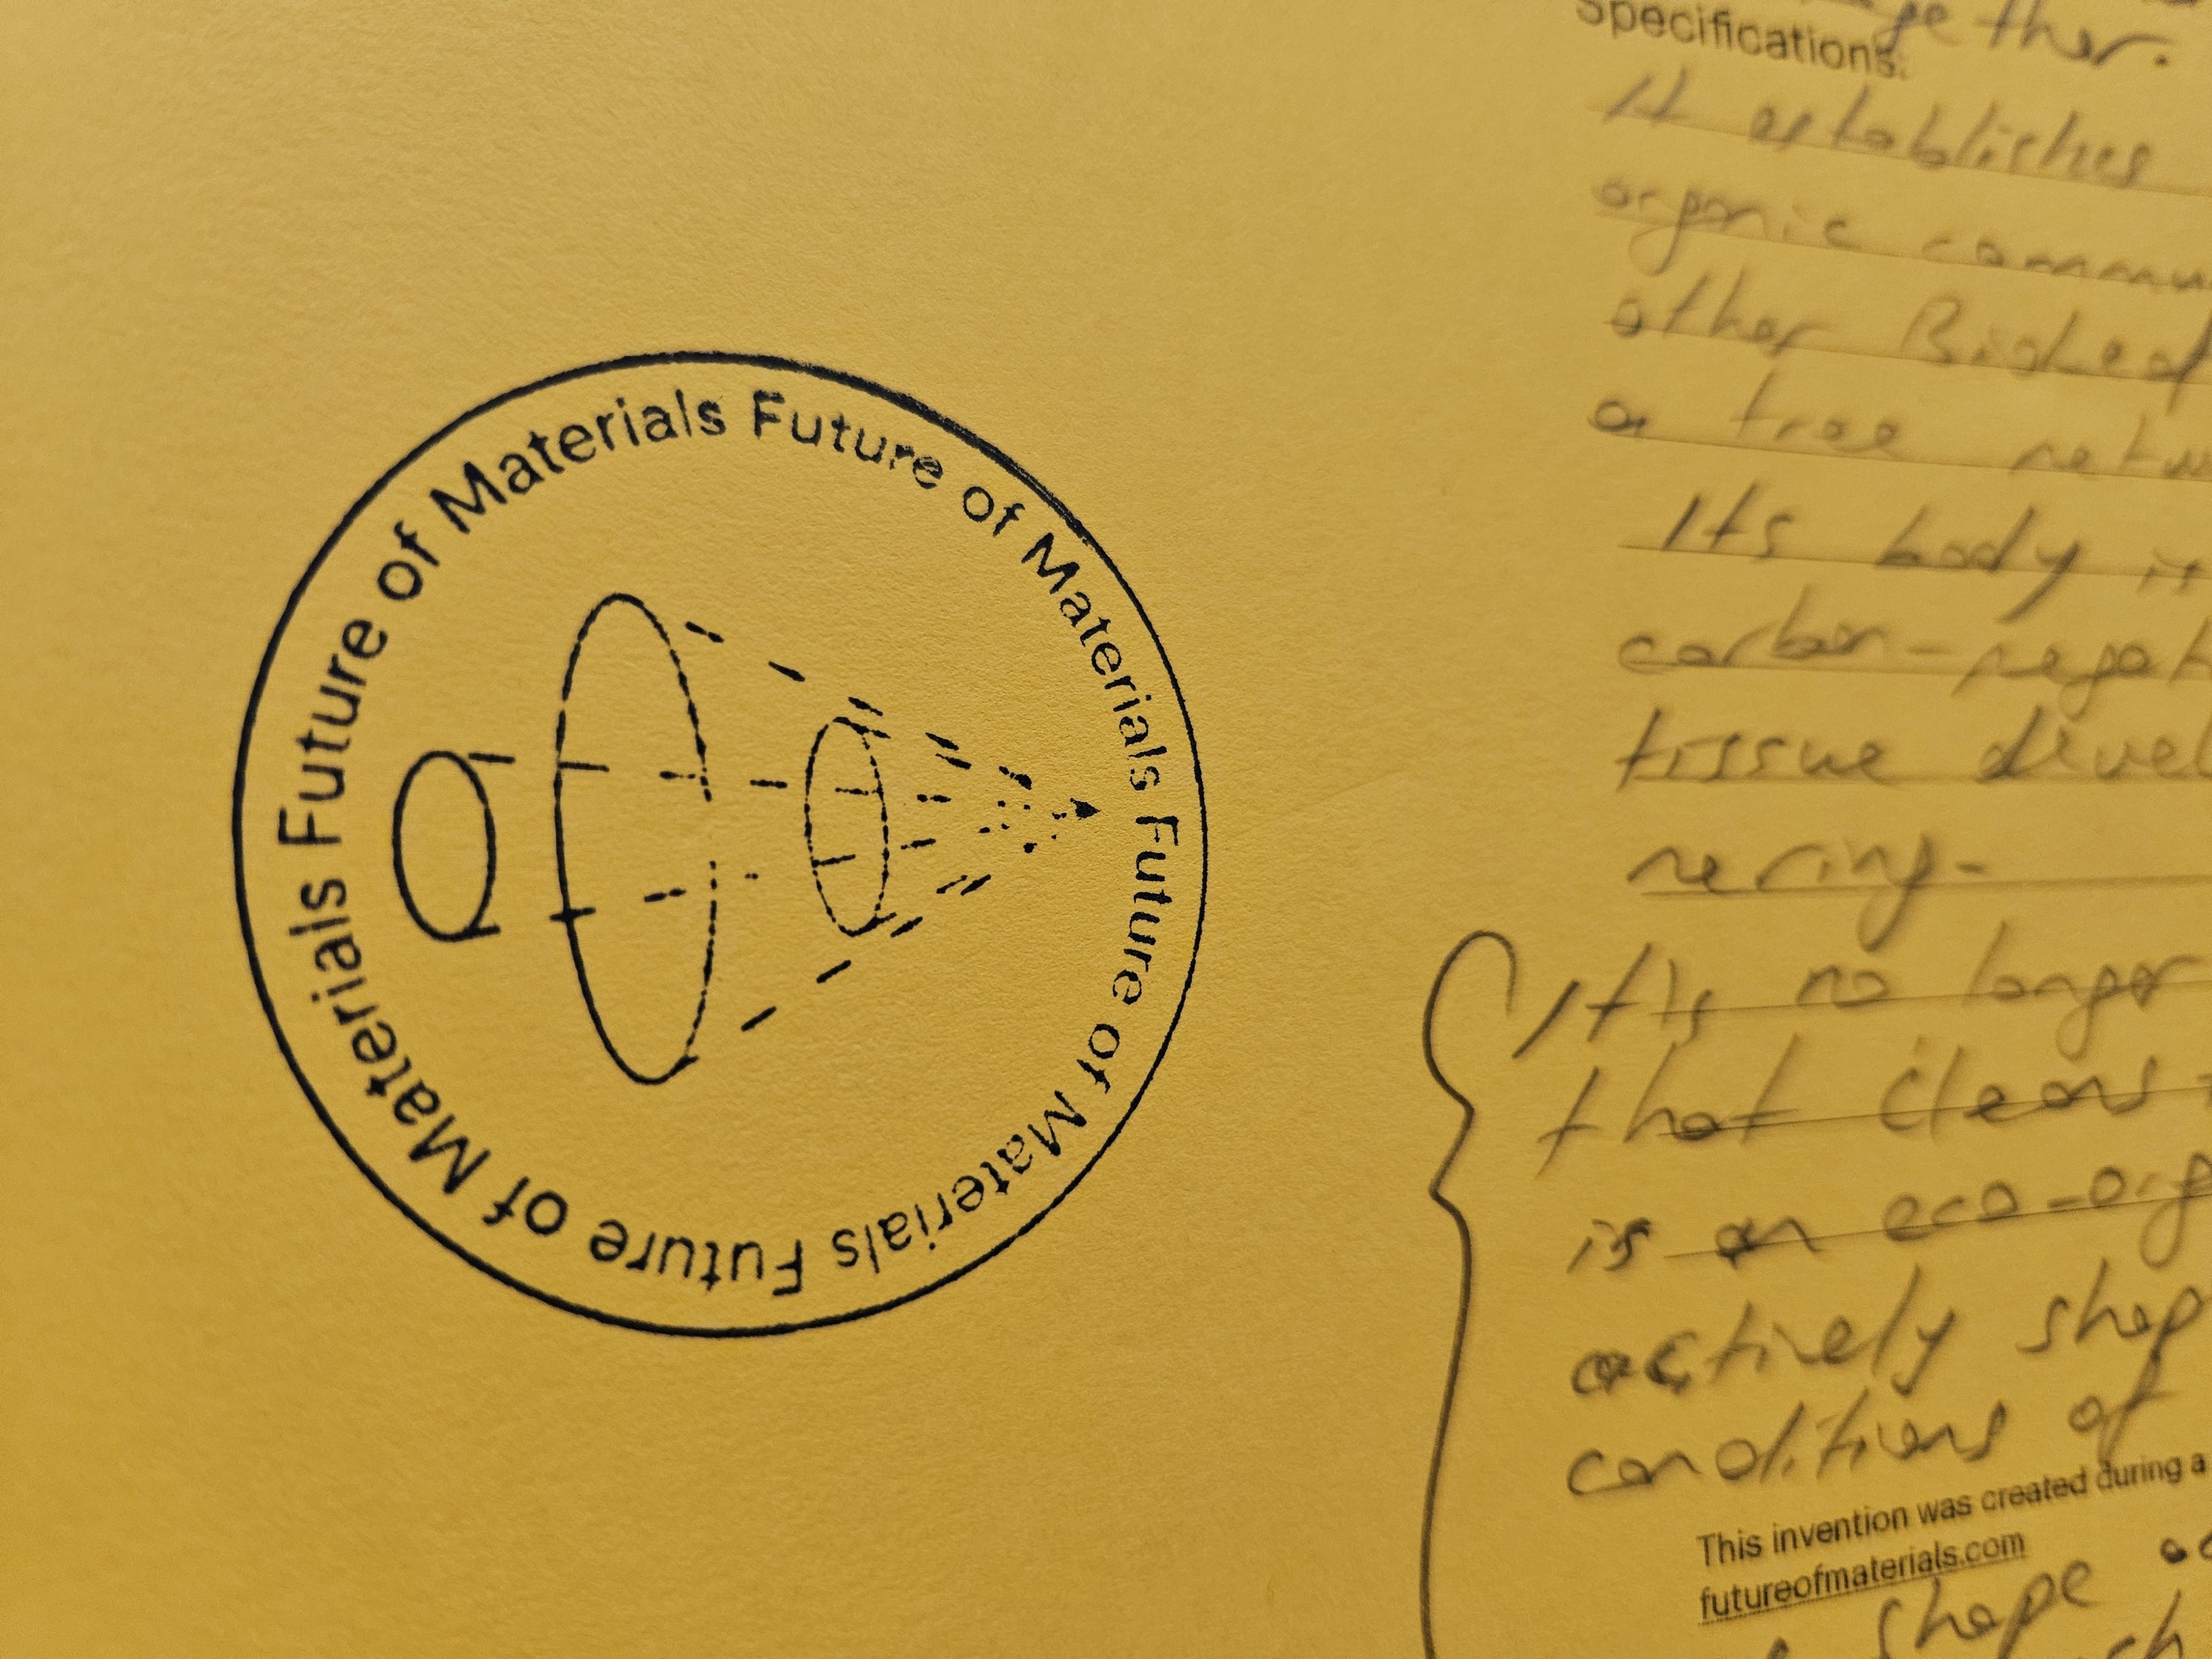 Future of Materials Future of Materials Future of Materials Future of Materials
gether.
Specifications.
It establishes
organic commu
other BioLeaf
a tree netw
Its body is
carbon-negat
tissue devel
nering-
It's no longer
that cleans
is an eco-org
actively shap
conditions of
This invention was created during a
futureofmaterials.com
shape